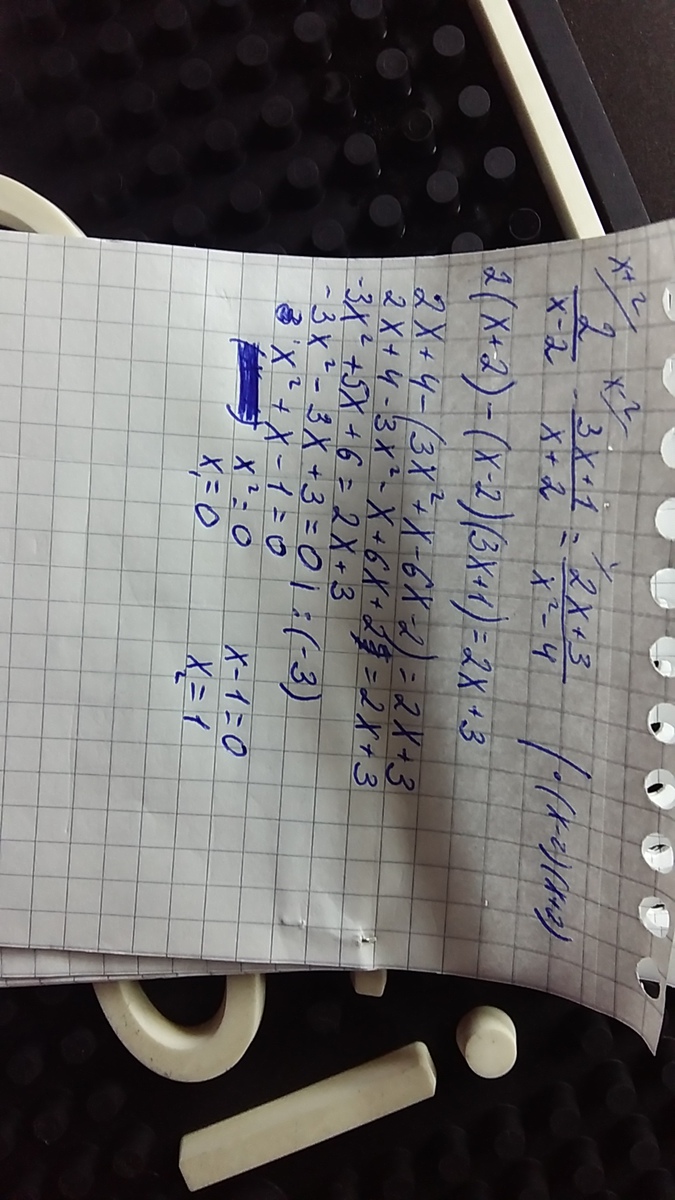 x+2/ x-2/ 1/
2/(x-2) - (3x+1)/(x+2) = (2x+3)/(x²-4) | ·(x-2)(x+2)
2(x+2) - (x-2)(3x+1) = 2x+3
2x+4-(3x²+x-6x-2) = 2x+3
2x+4-3x²-x+6x+2 = 2x+3
-3x²+5x+6 = 2x+3
-3x²-3x+3 = 0 | :(-3)
x²+x-1=0
x²=0 x-1=0
x₁=0 x₂=1